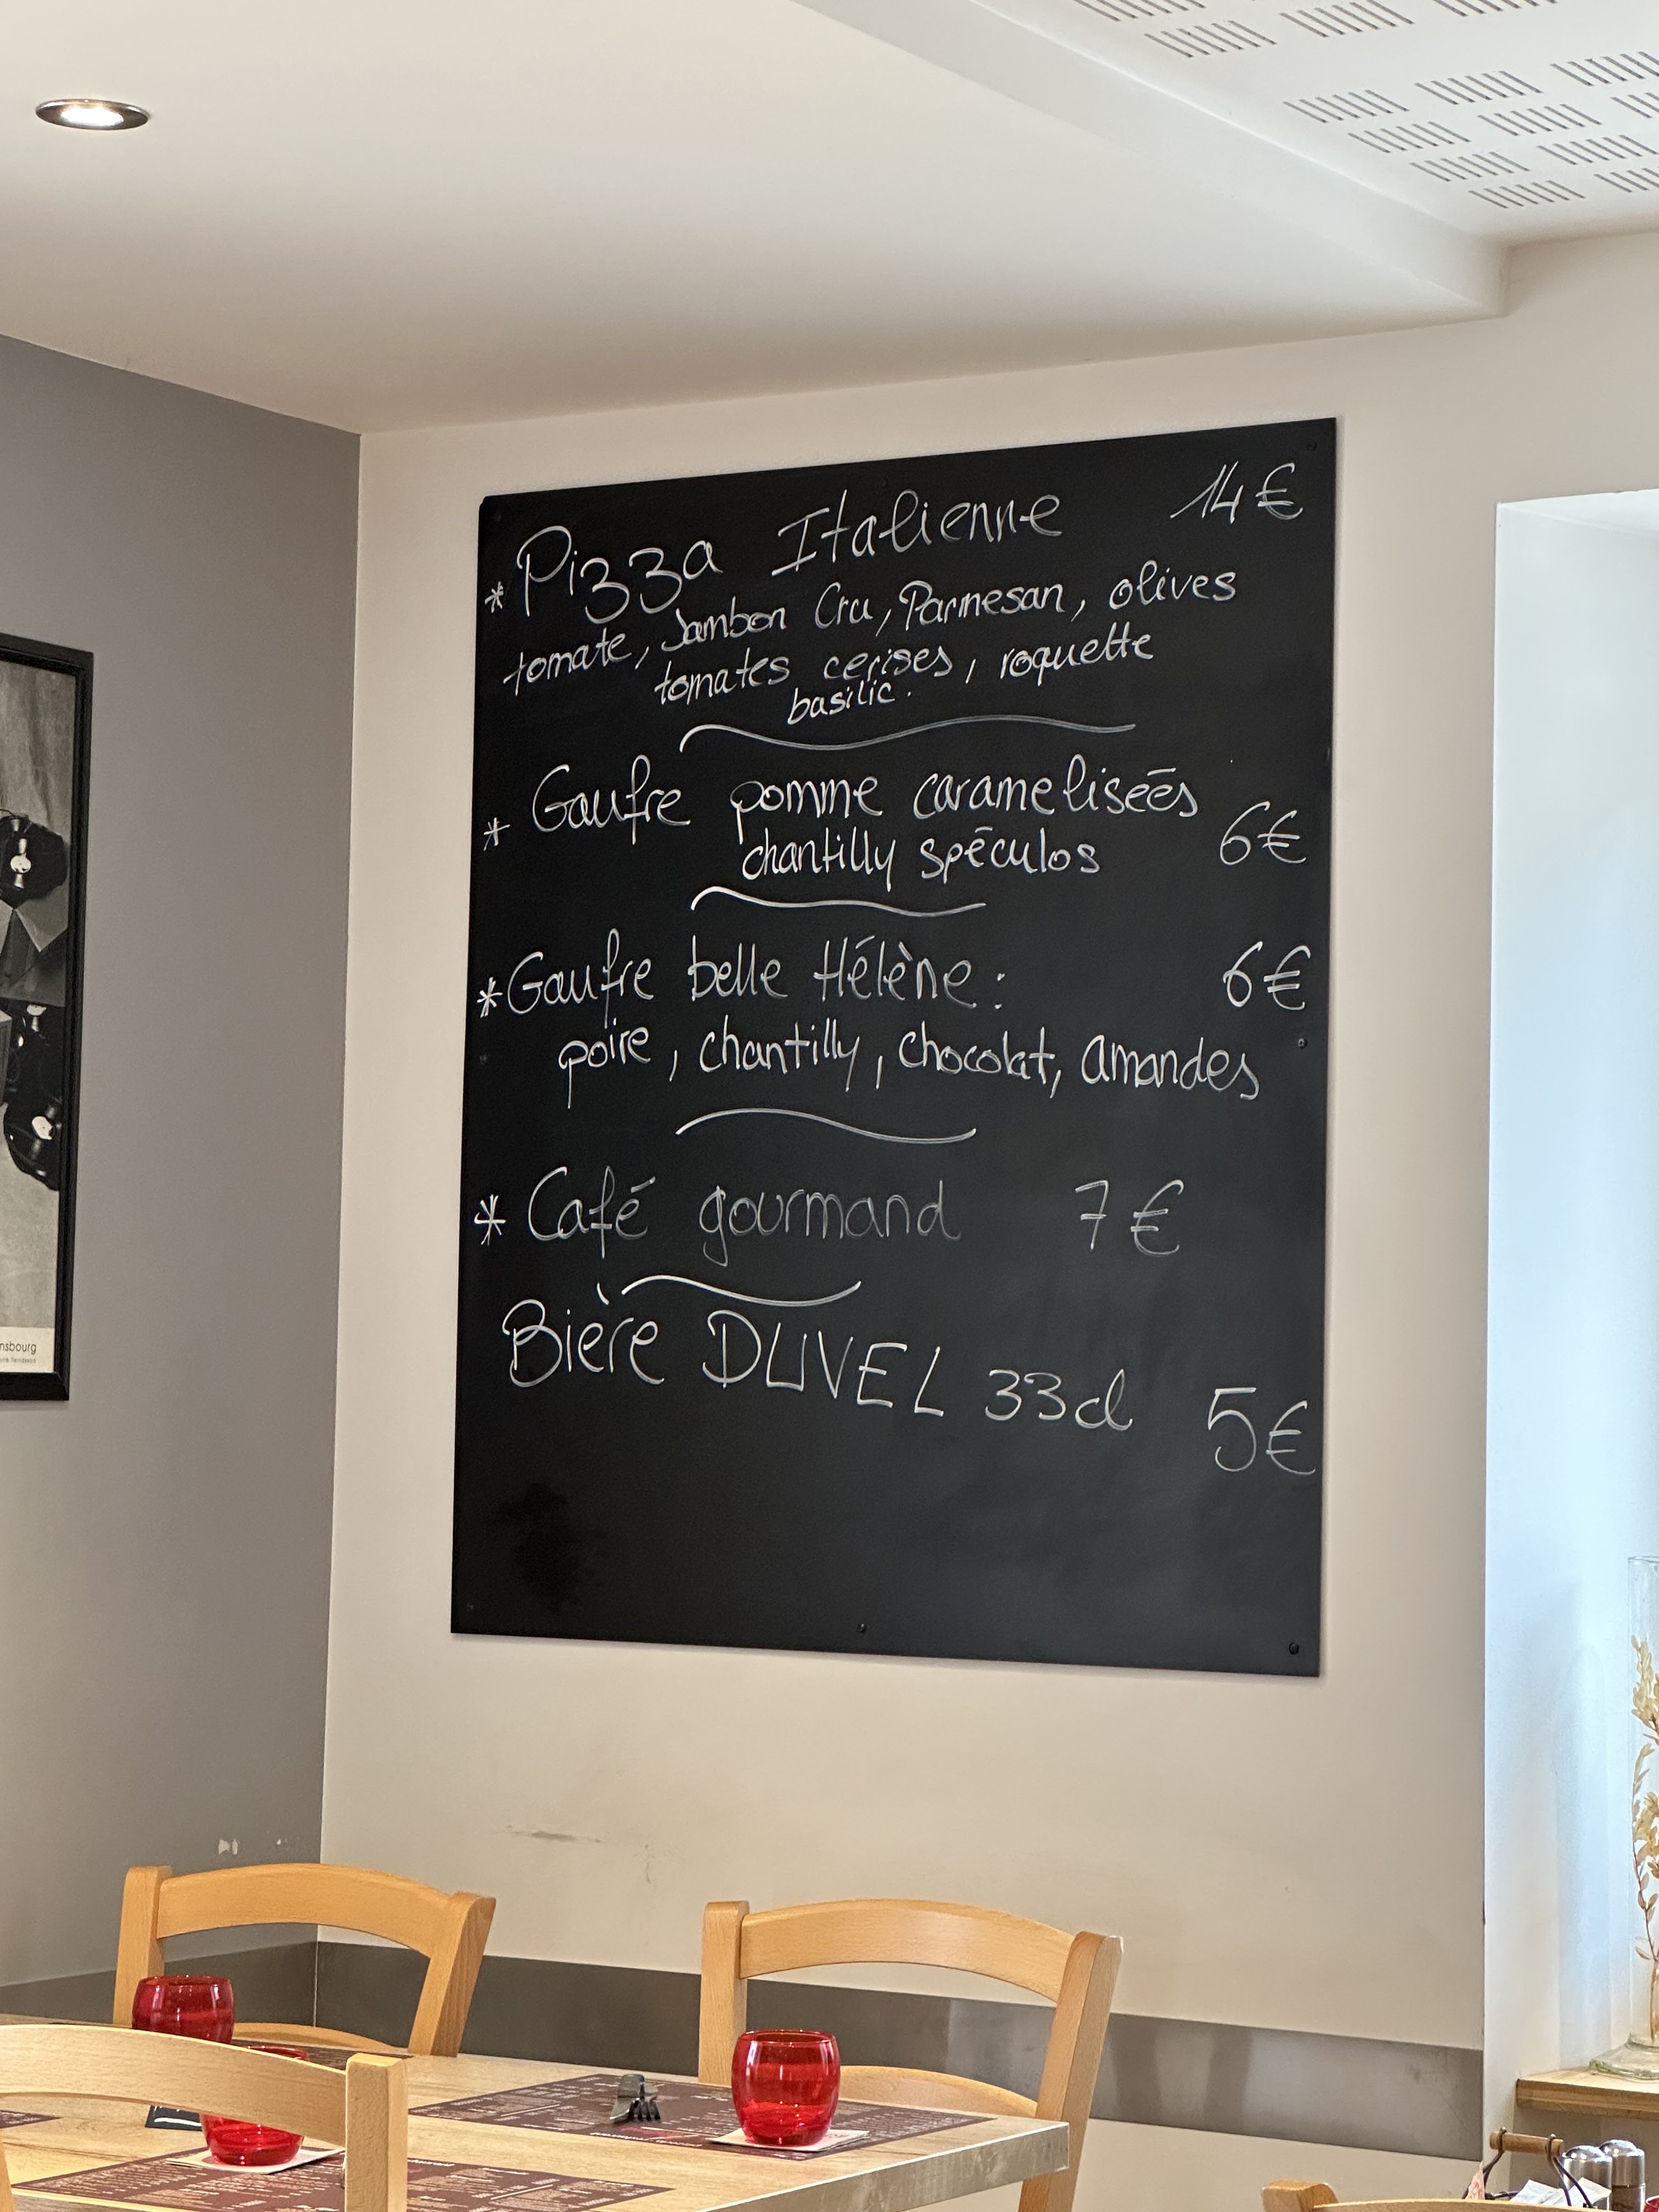 * Pizza Italienne 14€
tomate, Jambon Cru, Parmesan, olives
tomates cerises, roquette
basilic.
* Gaufre pomme carameliseēs
chantilly spēculos 6€
* Gaufre belle Hélène : 6€
poire, chantilly, chocolat, amandes
* Café gourmand 7€
Bière DUVEL 33cl 5€
nsbourg